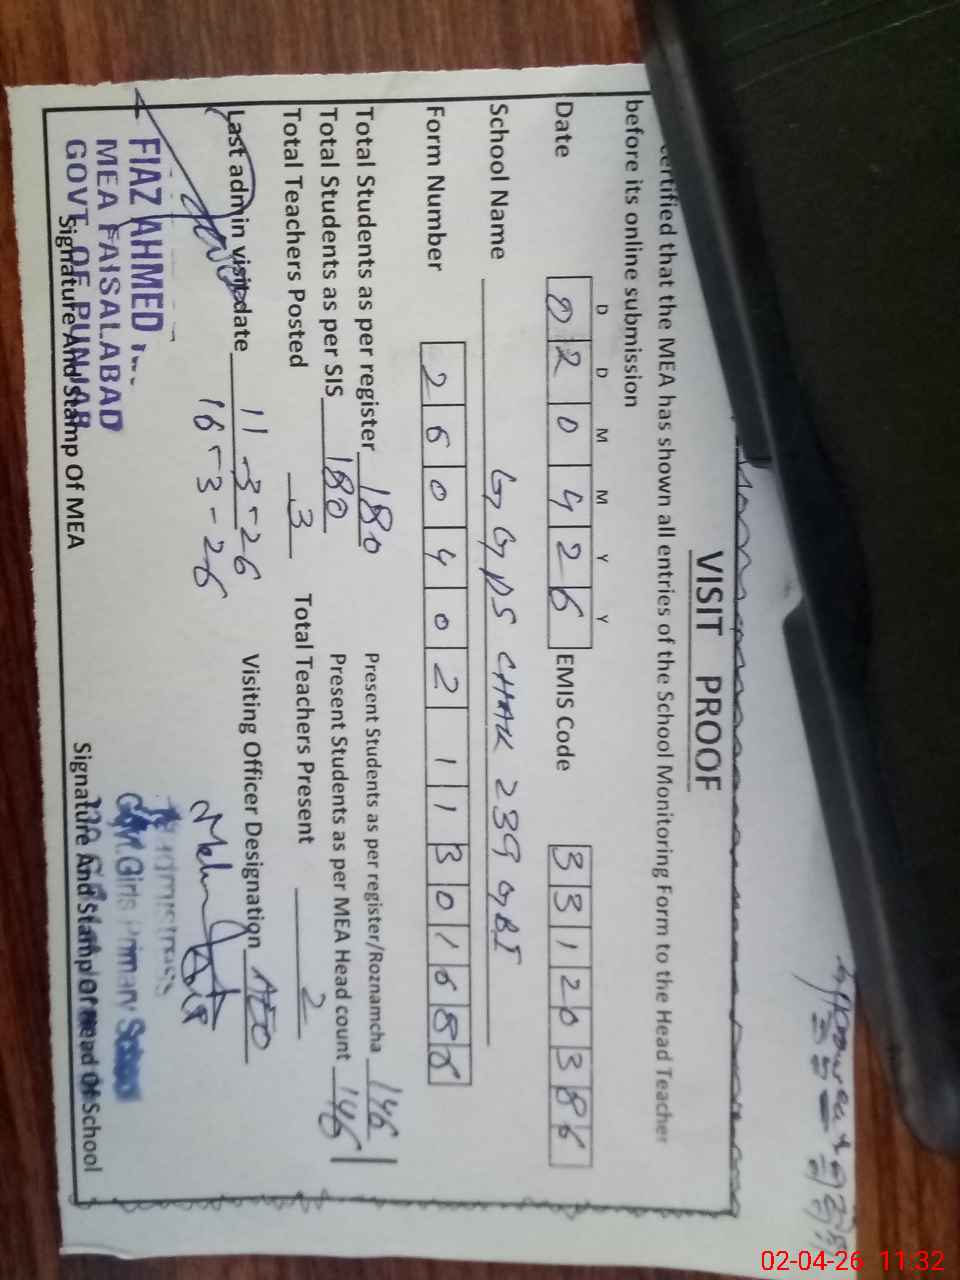 VISIT PROOF
certified that the MEA has shown all entries of the School Monitoring Form to the Head Teacher
before its online submission
D D M M Y Y
Date 020426 EMIS Code 33120386
School Name GGPS CHAK 239 GBI
Form Number 2604021130168
Total Students as per register 180 Present Students as per register/Roznamcha 146
Total Students as per SIS 180 Present Students as per MEA Head count 146
Total Teachers Posted 3 Total Teachers Present 2
Last admin visit date 11-3-26 Visiting Officer Designation AEO
16-3-26
FIAZ AHMED
MEA FAISALABAD
GOVT. OF PUNJAB
Signature And Stamp Of MEA
Govt. Girls Primary School
Signature And Stamp Of Head Of School
02-04-26 11:32